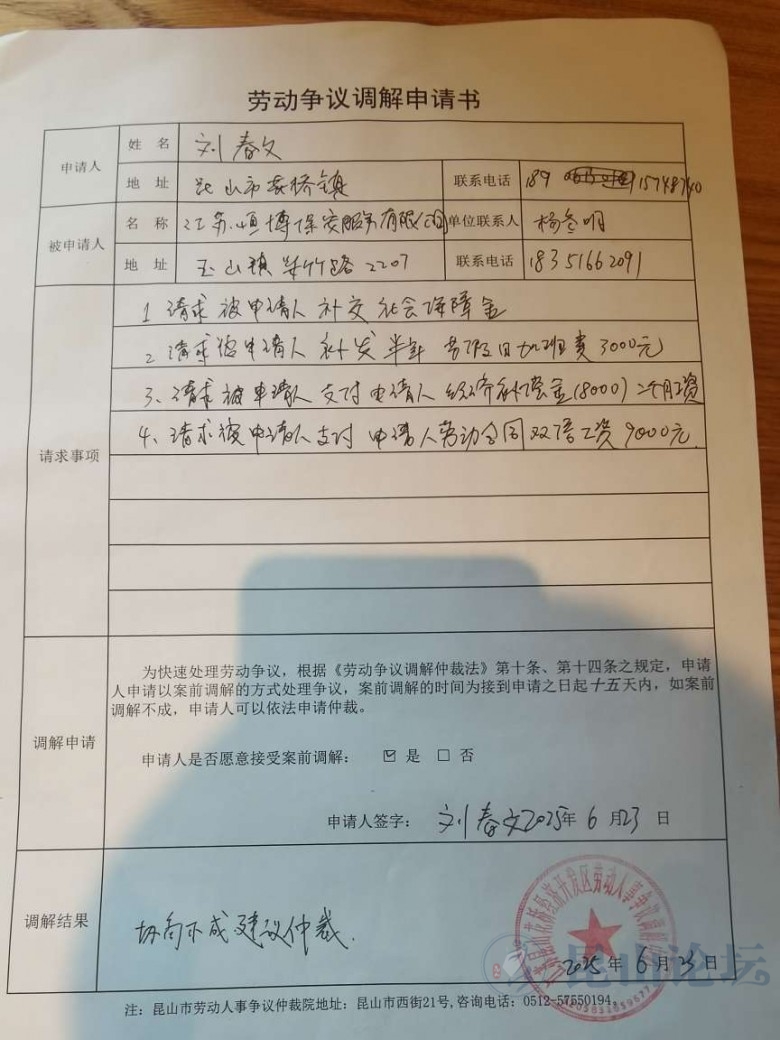 劳动争议调解申请书
申请人 姓 名 刘春文
地 址 昆山市花桥镇 联系电话 189 15748740
被申请人 名 称 江苏恒博保安服务有限公司 单位联系人 杨
地 址 玉山镇 紫竹路 2207 联系电话 18351662091
请求事项
1 请求被申请人 补交 社会保障金
2 请求被申请人 补发 半年 节假日加班费 3000元
3、请求被申请人 支付 申请人 经济补偿金(8000) 二个月工资
4、请求被申请人支付 申请人劳动合同双倍工资 9000元
调解申请
为快速处理劳动争议，根据《劳动争议调解仲裁法》第十条、第十四条之规定，申请
人申请以案前调解的方式处理争议，案前调解的时间为接到申请之日起十五天内，如案前
调解不成，申请人可以依法申请仲裁。
申请人是否愿意接受案前调解： ☑ 是 □ 否
申请人签字： 刘春文 2025年 6 月 23 日
调解结果
协商不成建议仲裁.
2025 年 6 月 23 日
昆山论坛
注：昆山市劳动人事争议仲裁院地址：昆山市西街21号,咨询电话：0512-57550194。